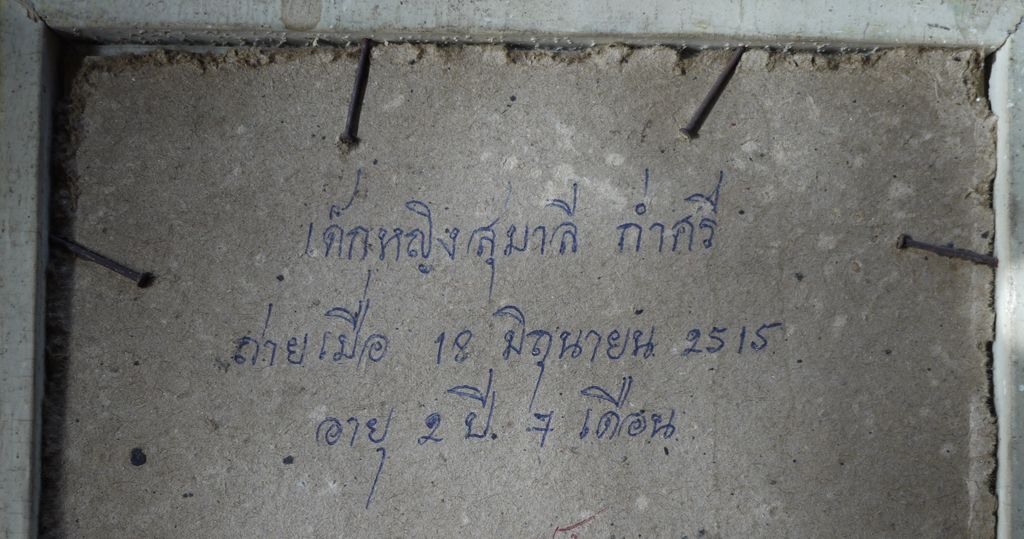 เด็กหญิงสุมาลี ก่ำศรี
ถ่ายเมื่อ 18 มิถุนายน 2515
อายุ 2 ปี. 7 เดือน